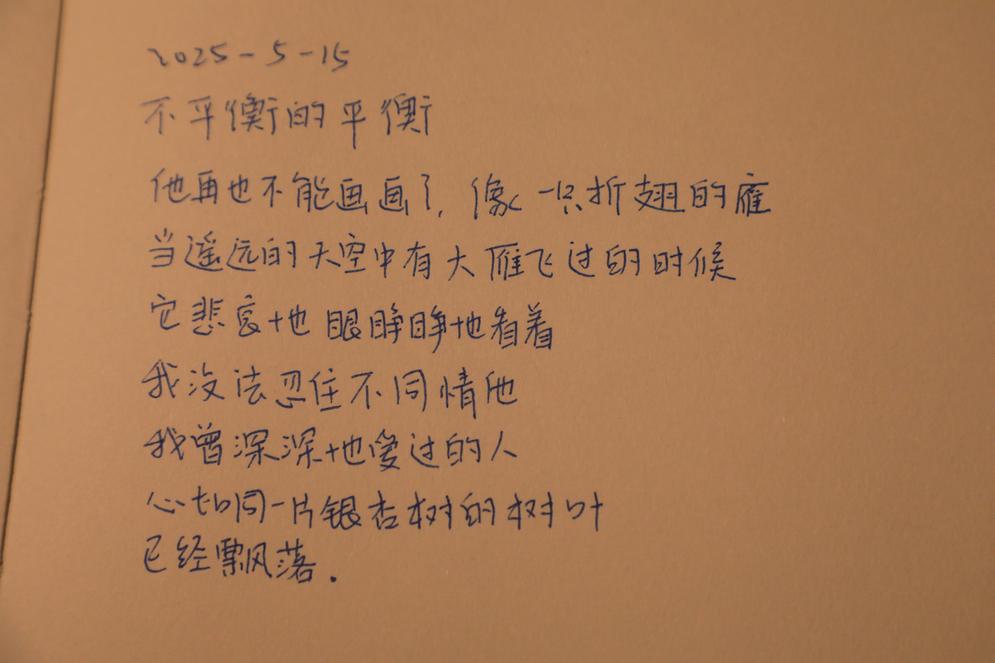 2025-5-15
不平衡的平衡
他再也不能画画了，像一只折翅的雁
当遥远的天空中有大雁飞过的时候
它悲哀地眼睁睁地看着
我没法忍住不同情他
我曾深深地爱过的人
心如同一片银杏树的树叶
已经飘落.